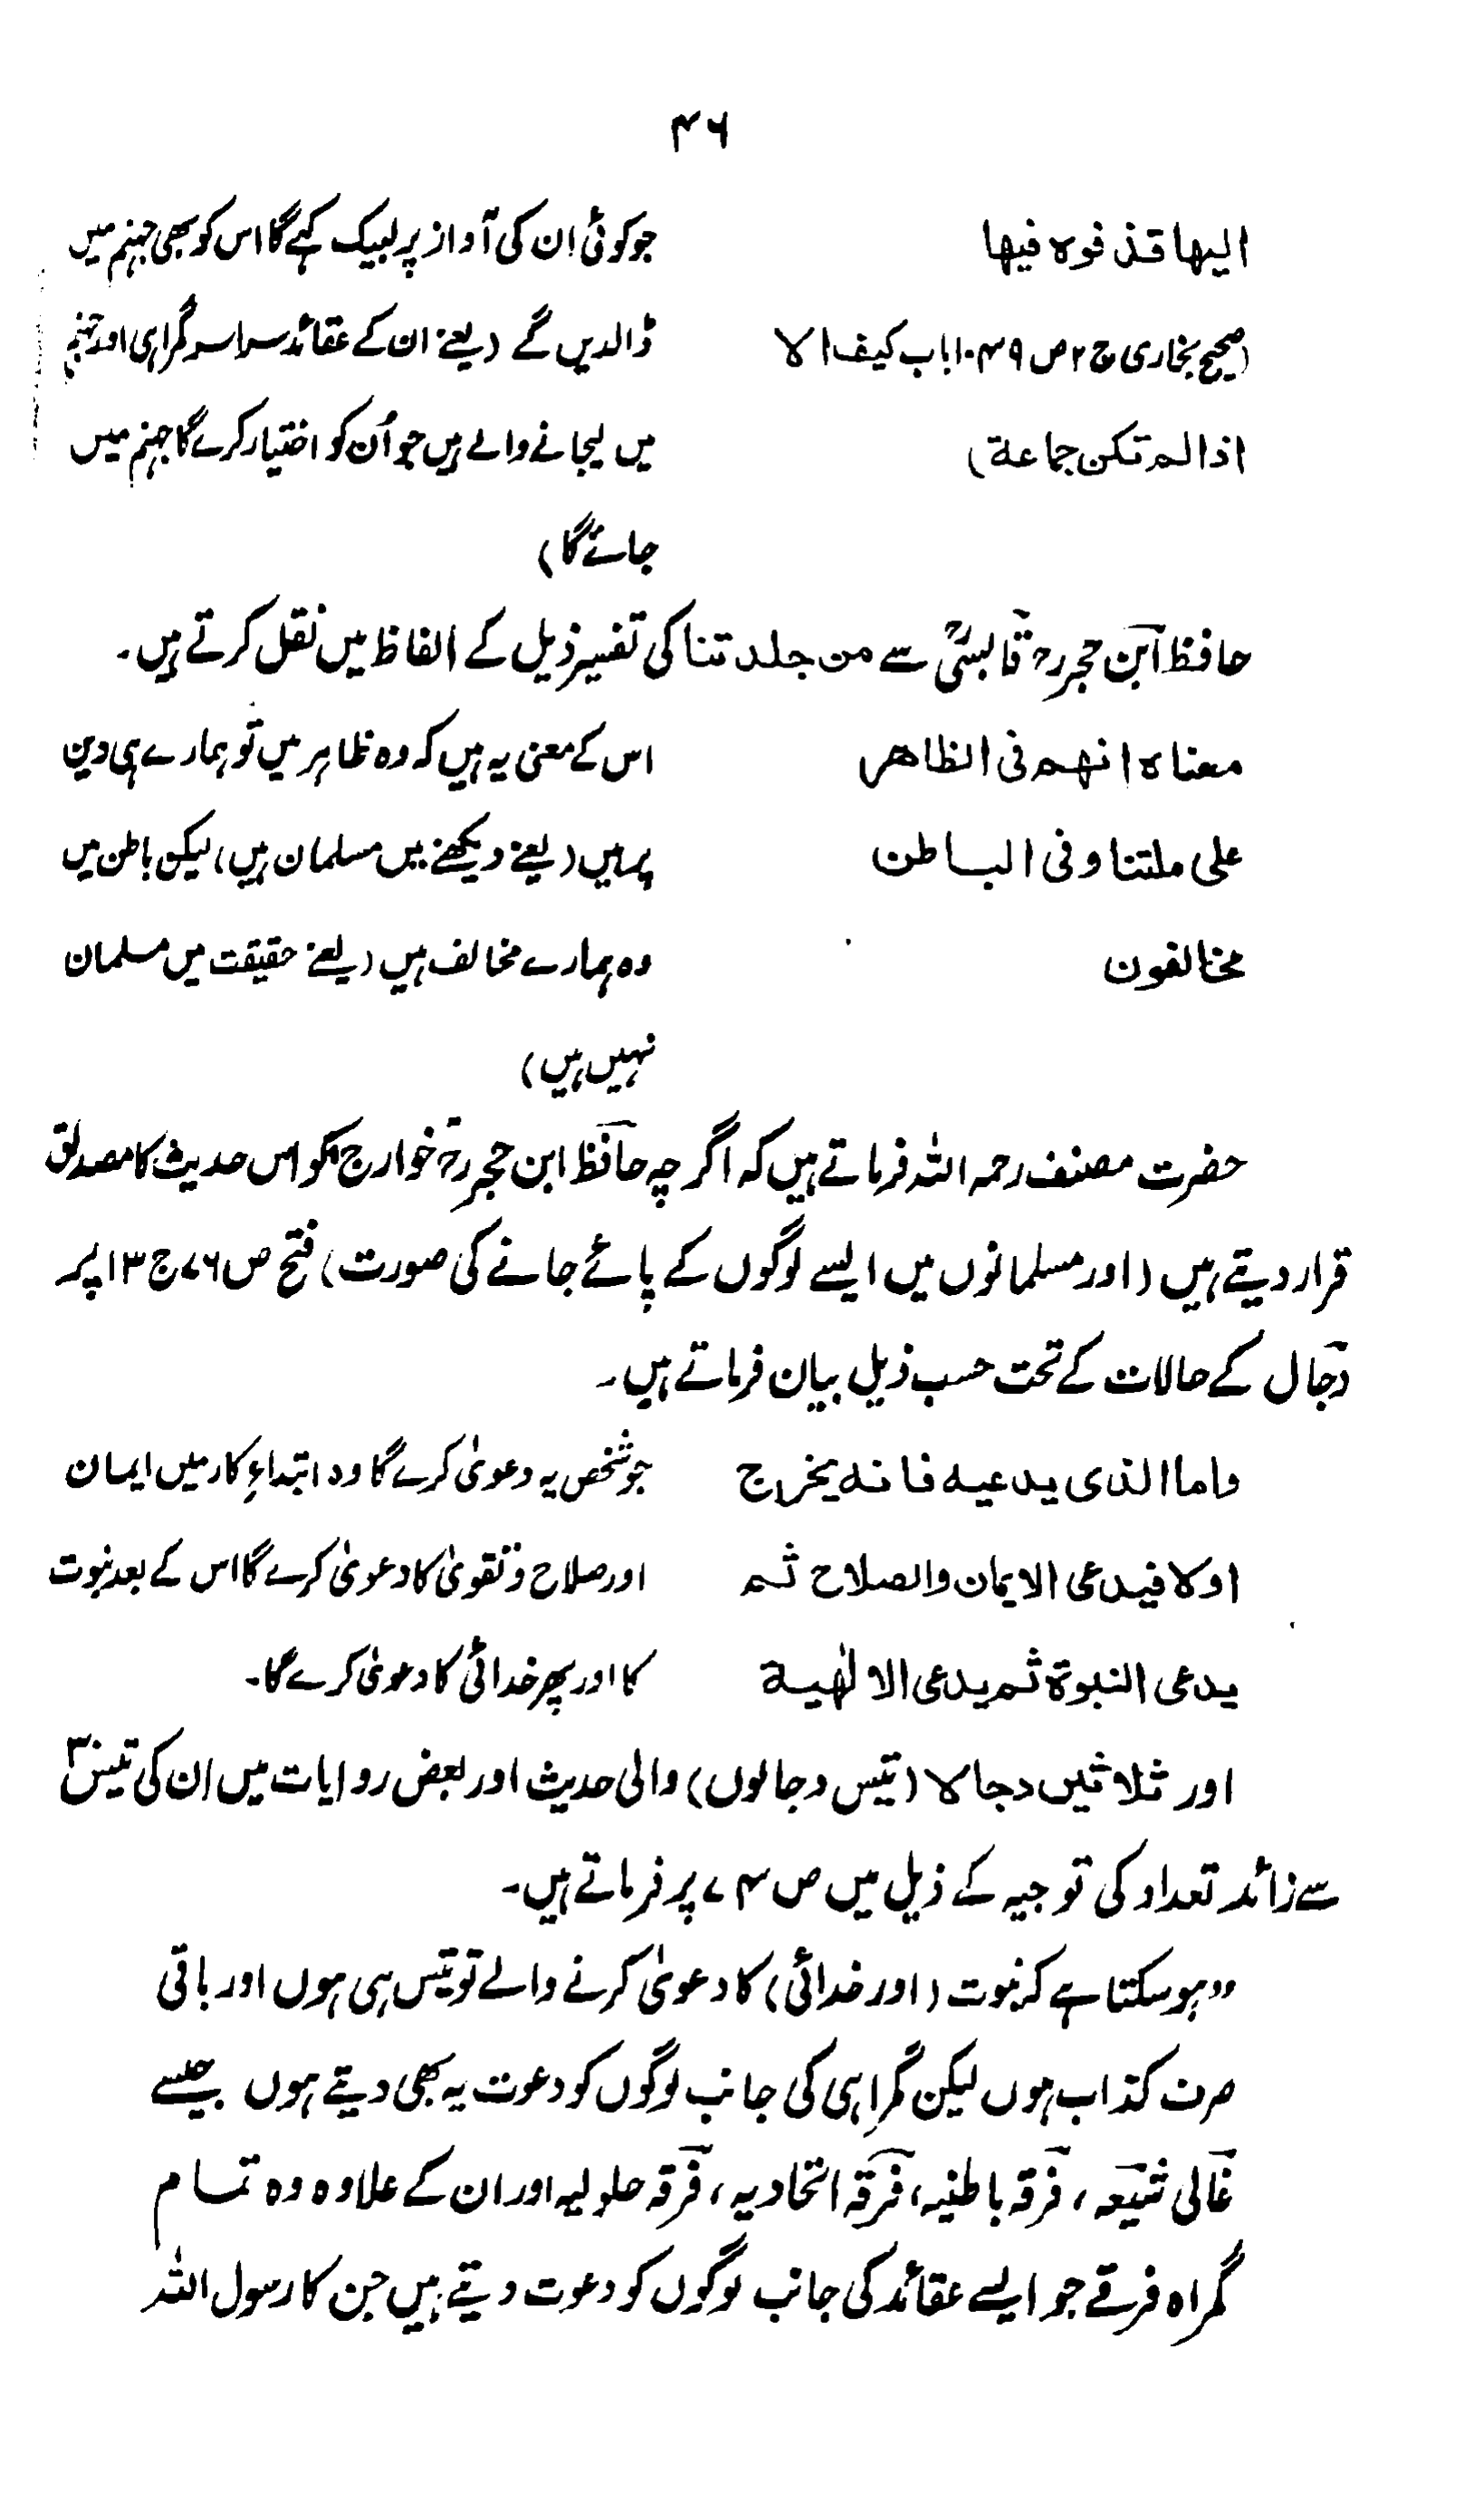 ۴۶
الیھا قذفوہ فیھا
جو کوئی ان کی آواز پر لبیک کہے گا اس کو بھی جہنم میں
(صحیح بخاری ج ۲ ص ۱۰۴۹ باب کیف الا
ڈالدیں گے (یعنے ان کے عقائد سراسر گمراہی اور
اذا لم تکن جماعة)
میں لیجانے والے ہیں جو اُن کو اختیار کرے گا جہنم میں
جائے گا)
حافظ ابن حجرؒ قابسیؒ سے من جلدتنا کی تفسیر ذیل کے الفاظ میں نقل کرتے ہیں۔
معناہ انھم فی الظاھر
اس کے معنی یہ ہیں کہ وہ ظاہر میں تو ہمارے ہی دین
علی ملتنا وفی الباطن
پر ہیں (یعنے دیکھنے میں مسلمان ہیں) لیکن باطن میں
مخالفون
وہ ہمارے مخالف ہیں (یعنے حقیقت میں مسلمان
نہیں ہیں)
حضرت مصنف رحمہ اللہ فرماتے ہیں کہ اگرچہ حافظ ابن حجرؒ خوارج کو اس حدیث کا مصداق
قرار دیتے ہیں (اور مسلمانوں میں ایسے لوگوں کے پائے جانے کی صورت) فتح ص ۷۶ ج ۱۳ پر
دجال کے حالات کے تحت حسب ذیل بیان فرماتے ہیں۔
واما الذی یدعیہ فانہ یخرج
جو شخص یہ دعویٰ کرے گا وہ ابتداءِ کار میں ایمان
اولا فیدعی الایمان والصلاح ثم
اور صلاح و تقویٰ کا دعویٰ کرے گا اس کے بعد نبوت
یدعی النبوة ثم یدعی الالٰھیة
کا اور پھر خدائی کا دعویٰ کرے گا۔
اور ثلاثین دجالا (تیس دجالوں) والی حدیث اور بعض روایات میں ان کی تیس
سے زائد تعداد کی توجیہ کے ذیل میں ص ۷۴ پر فرماتے ہیں۔
”ہو سکتا ہے کہ نبوت (اور خدائی) کا دعویٰ کرنے والے تو تیس ہی ہوں اور باقی
صرف کذاب ہوں لیکن گمراہی کی جانب لوگوں کو دعوت یہ بھی دیتے ہوں جیسے
غالی شیعہ، فرقہ باطنیہ، فرقہ اتحادیہ، فرقہ حلولیہ اور ان کے علاوہ وہ تمام
گمراہ فرقے جو ایسے عقائد کی جانب لوگوں کو دعوت دیتے ہیں جن کا رسول اللہ